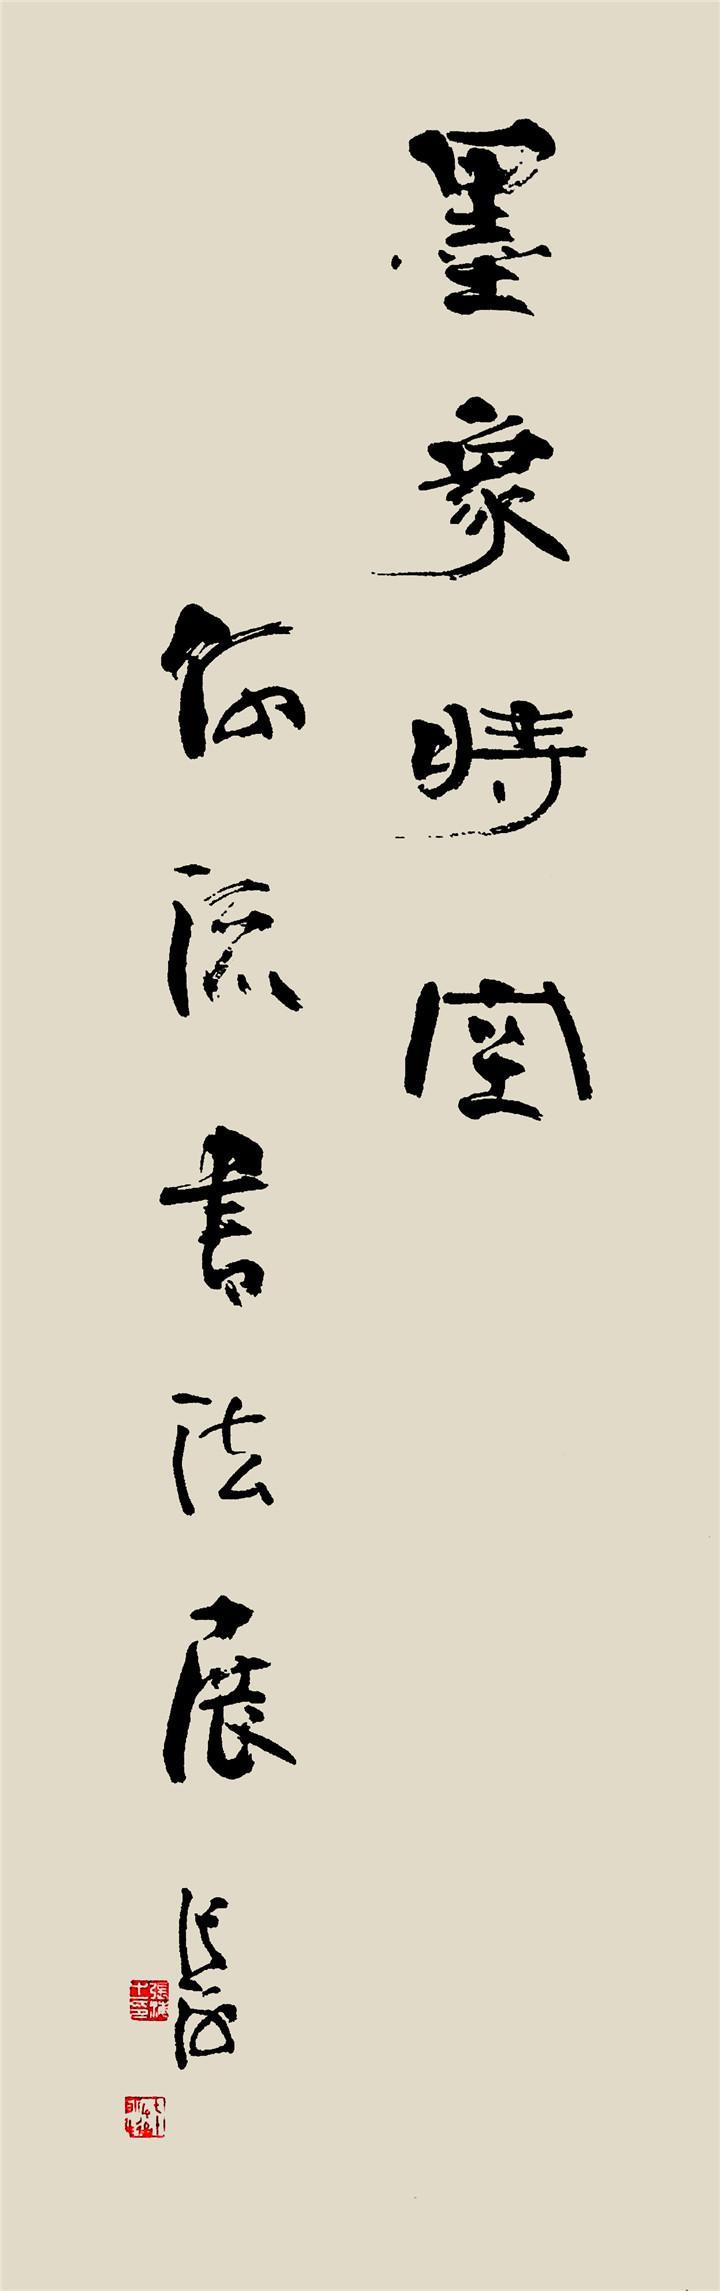 墨象時空
何流書法展
張海